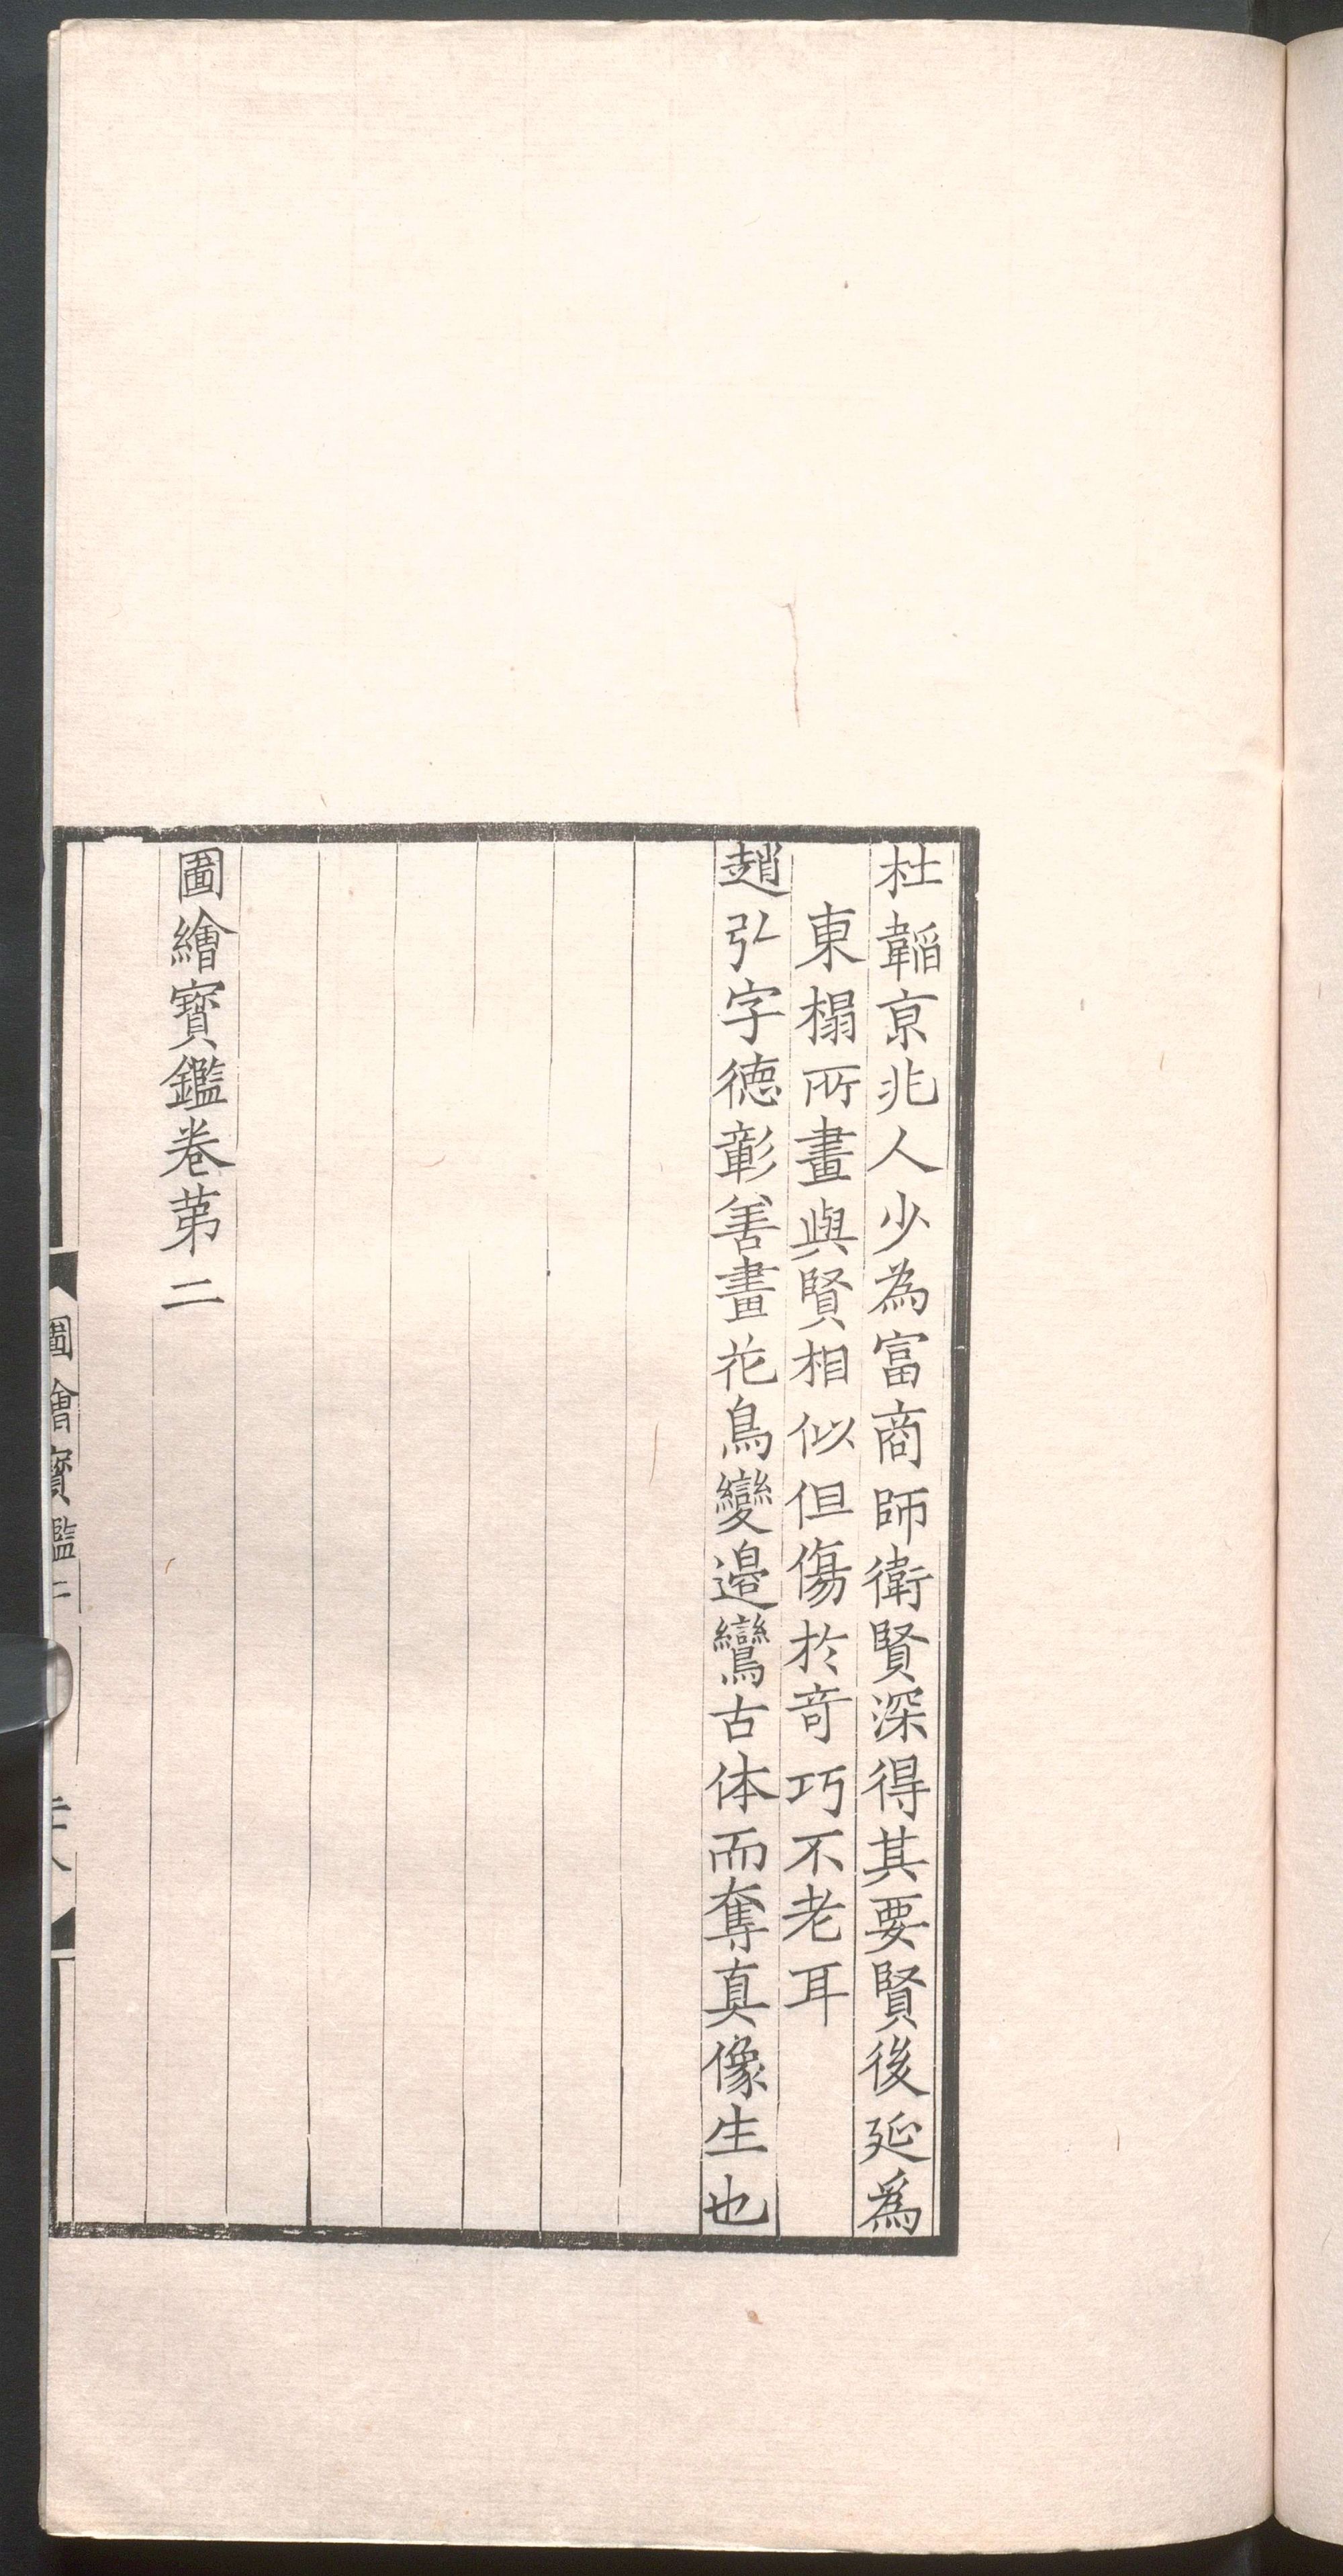 杜韜京兆人少為富商師衛賢深得其要賢後延為
東榻所畫與賢相似但傷於竒巧不老耳
趙弘字德彰善畫花鳥變邉鸞古体而奪真像生也
圖繪寳鑑卷苐二
圖繪寳鑑二